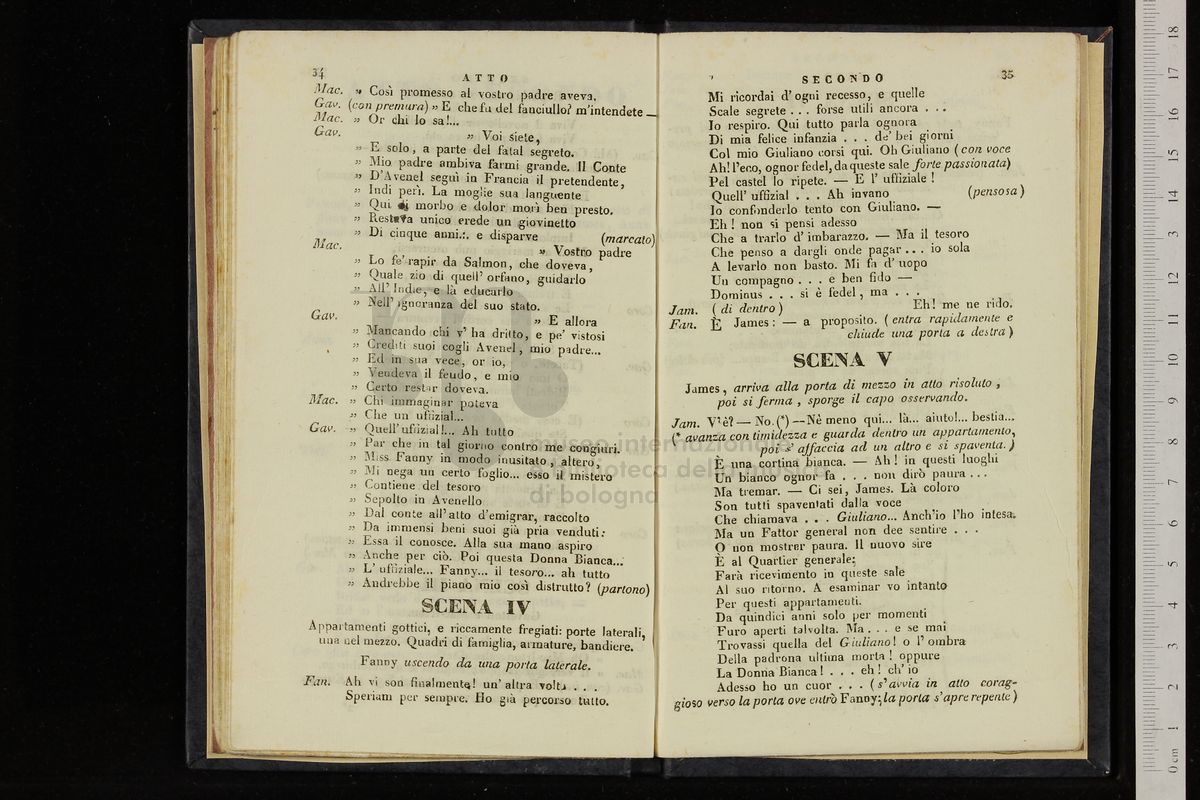 34
ATTO
Mac. „ Così promesso al vostro padre aveva.
Gav. (con premura) „ E che fu del fanciullo? m'intendete —
Mac. „ Or chi lo sa!...
Gav. „ Voi siete,
„ E solo, a parte del fatal segreto.
„ Mio padre ambiva farmi grande. Il Conte
„ D'Avenel seguì in Francia il pretendente,
„ Indi perì. La moglie sua languente
„ Qui di morbo e dolor morì ben presto.
„ Restava unico erede un giovinetto
„ Di cinque anni.:. e disparve (marcato)
Mac. „ Vostro padre
„ Lo fe' rapir da Salmon, che doveva,
„ Quale zio di quell' orfano, guidarlo
„ All' Indie, e là educarlo
„ Nell' ignoranza del suo stato.
Gav. „ E allora
„ Mancando chi v' ha dritto, e pe' vistosi
„ Crediti suoi cogli Avenel, mio padre...
„ Ed in sua vece, or io,
„ Vendeva il feudo, e mio
„ Certo restar doveva.
Mac. „ Chi immaginar poteva
„ Che un ufizial...
Gav. „ Quell' ufizial!... Ah tutto
„ Par che in tal giorno contro me congiuri.
„ Miss Fanny in modo inusitato, altero,
„ Mi nega un certo foglio... esso il mistero
„ Contiene del tesoro
„ Sepolto in Avenello
„ Dal conte all' atto d'emigrar, raccolto
„ Da immensi beni suoi già pria venduti:
„ Essa il conosce. Alla sua mano aspiro
„ Anche per ciò. Poi questa Donna Bianca...
„ L' uffiziale... Fanny... il tesoro... ah tutto
„ Andrebbe il piano mio così distrutto? (partono)
SCENA IV
Appartamenti gottici, e riccamente fregiati: porte laterali,
una nel mezzo. Quadri di famiglia, armature, bandiere.
Fanny uscendo da una porta laterale.
Fan. Ah vi son finalmente! un' altra volta . . .
Speriam per sempre. Ho già percorso tutto.
SECONDO
35
Mi ricordai d' ogni recesso, e quelle
Scale segrete . . . forse utili ancora . . .
Io respiro. Qui tutto parla ognora
Di mia felice infanzia . . . de' bei giorni
Col mio Giuliano corsi qui. Oh Giuliano (con voce
Ah! l'eco, ognor fedel, da queste sale forte passionata)
Pel castel lo ripete. — E l' uffiziale !
Quell' uffizial . . . Ah invano (pensosa)
Io confonderlo tento con Giuliano. —
Eh ! non si pensi adesso
Che a trarlo d' imbarazzo. — Ma il tesoro
Che penso a dargli onde pagar . . . io sola
A levarlo non basto. Mi fa d' uopo
Un compagno . . . e ben fido —
Dominus . . . sì è fedel, ma . . .
Jam. ( di dentro ) Eh! me ne rido.
Fan. È James: — a proposito. ( entra rapidamente e
chiude una porta a destra )
SCENA V
James, arriva alla porta di mezzo in atto risoluto,
poi si ferma, sporge il capo osservando.
Jam. V'è? — No. (*) — Nè meno qui... là... aiuto!... bestia...
(* avanza con timidezza e guarda dentro un appartamento,
poi s' affaccia ad un altro e si spaventa. )
È una cortina bianca. — Ah ! in questi luoghi
Un bianco ognor fa . . . non dirò paura . . .
Ma tremar. — Ci sei, James. Là coloro
Son tutti spaventati dalla voce
Che chiamava . . . Giuliano... Anch'io l'ho intesa.
Ma un Fattor general non dee sentire . . .
O non mostrer paura. Il nuovo sire
È al Quartier generale;
Farà ricevimento in queste sale
Al suo ritorno. A esaminar vo intanto
Per questi appartamenti.
Da quindici anni solo per momenti
Furo aperti talvolta. Ma . . . e se mai
Trovassi quella del Giuliano! o l' ombra
Della padrona ultima morta ! oppure
La Donna Bianca ! . . . eh ! ch' io
Adesso ho un cuor . . . ( s'avvia in atto corag-
gioso verso la porta ove entrò Fanny; la porta s'apre repente )
museo internazionale
e biblioteca della musica
di bologna
0 cm 1 2 3 4 5 6 7 8 9 10 11 12 13 14 15 16 17 18